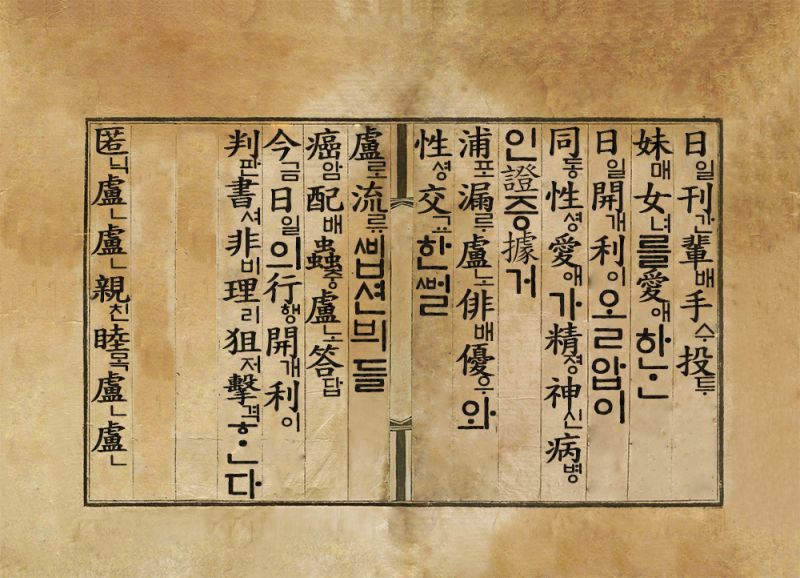 日일刊간輩배手수投투
妹매女녀를愛애ᄒᆞᆫ
日일開개利이오ㄹ압이
同동性셩愛애가精졍神신病병
인證증據거
浦포漏루盧노俳배優우와
性셩交교한뻘
盧로流류ᄡᅵᆸ션븨들
癌암配배蟲충盧노答답
今금日일의行행開개利이
判판書셔非비理리狙저擊격ᄒᆞᆫ다
匿닉盧ㄴ盧ㄴ親친睦목盧ㄴ盧ㄴ